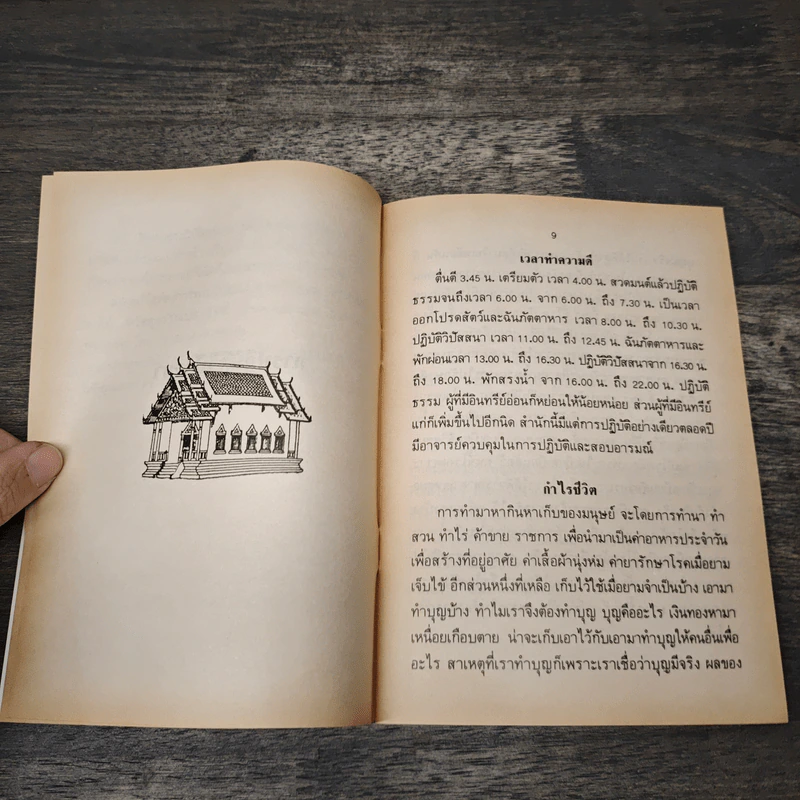 9
เวลาทำความดี
ตื่นตี 3.45 น. เตรียมตัว เวลา 4.00 น. สวดมนต์แล้วปฏิบัติ
ธรรมจนถึงเวลา 6.00 น. จาก 6.00 น. ถึง 7.30 น. เป็นเวลา
ออกโปรดสัตว์และฉันภัตตาหาร เวลา 8.00 น. ถึง 10.30 น.
ปฏิบัติวิปัสสนา เวลา 11.00 น. ถึง 12.45 น. ฉันภัตตาหารและ
พักผ่อนเวลา 13.00 น. ถึง 16.30 น. ปฏิบัติวิปัสสนาจาก 16.30 น.
ถึง 18.00 น. พักสรงน้ำ จาก 16.00 น. ถึง 22.00 น. ปฏิบัติ
ธรรม ผู้ที่มีอินทรีย์อ่อนก็หย่อนให้น้อยหน่อย ส่วนผู้ที่มีอินทรีย์
แก่ก็เพิ่มขึ้นไปอีกนิด สำนักนี้มีแต่การปฏิบัติอย่างเดียวตลอดปี
มีอาจารย์ควบคุมในการปฏิบัติและสอบอารมณ์
กำไรชีวิต
การทำมาหากินหาเก็บของมนุษย์ จะโดยการทำนา ทำ
สวน ทำไร่ ค้าขาย ราชการ เพื่อนำมาเป็นค่าอาหารประจำวัน
เพื่อสร้างที่อยู่อาศัย ค่าเสื้อผ้านุ่งห่ม ค่ายารักษาโรคเมื่อยาม
เจ็บไข้ อีกส่วนหนึ่งที่เหลือ เก็บไว้ใช้เมื่อยามจำเป็นบ้าง เอามา
ทำบุญบ้าง ทำไมเราจึงต้องทำบุญ บุญคืออะไร เงินทองหามา
เหนื่อยเกือบตาย น่าจะเก็บเอาไว้กับเอามาทำบุญให้คนอื่นเพื่อ
อะไร สาเหตุที่เราทำบุญก็เพราะเราเชื่อว่าบุญมีจริง ผลของ